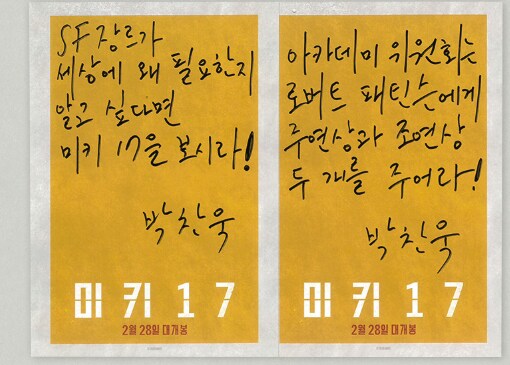 SF 장르가
세상에 왜 필요한지
알고 싶다면
미키 17을 보시라!
박찬욱
미키 17
2월 28일 대개봉
아카데미 위원회는
로버트 패틴슨에게
주연상과 조연상
두 개를 주어라!
박찬욱
미키 17
2월 28일 대개봉